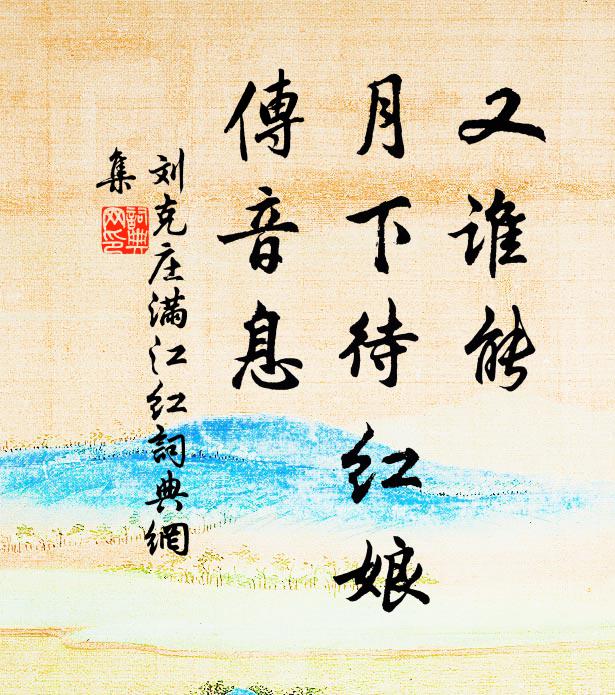 又谁能
月下待红娘
傳音息
刘克庄满江红詞典網
集
詞典
网印